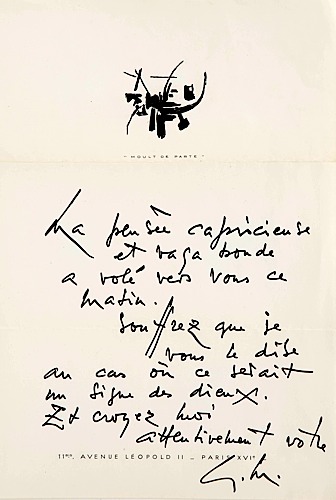 " MOULT DE PARTS "
Ma pensée capricieuse
et vagabonde
a volé vers vous ce
matin.
Souffrez que je
vous le dise
au cas où ce serait
un signe des dieux.
Et croyez moi
attentivement votre
11BIS, AVENUE LÉOPOLD II – PARIS XVIe
G. M.